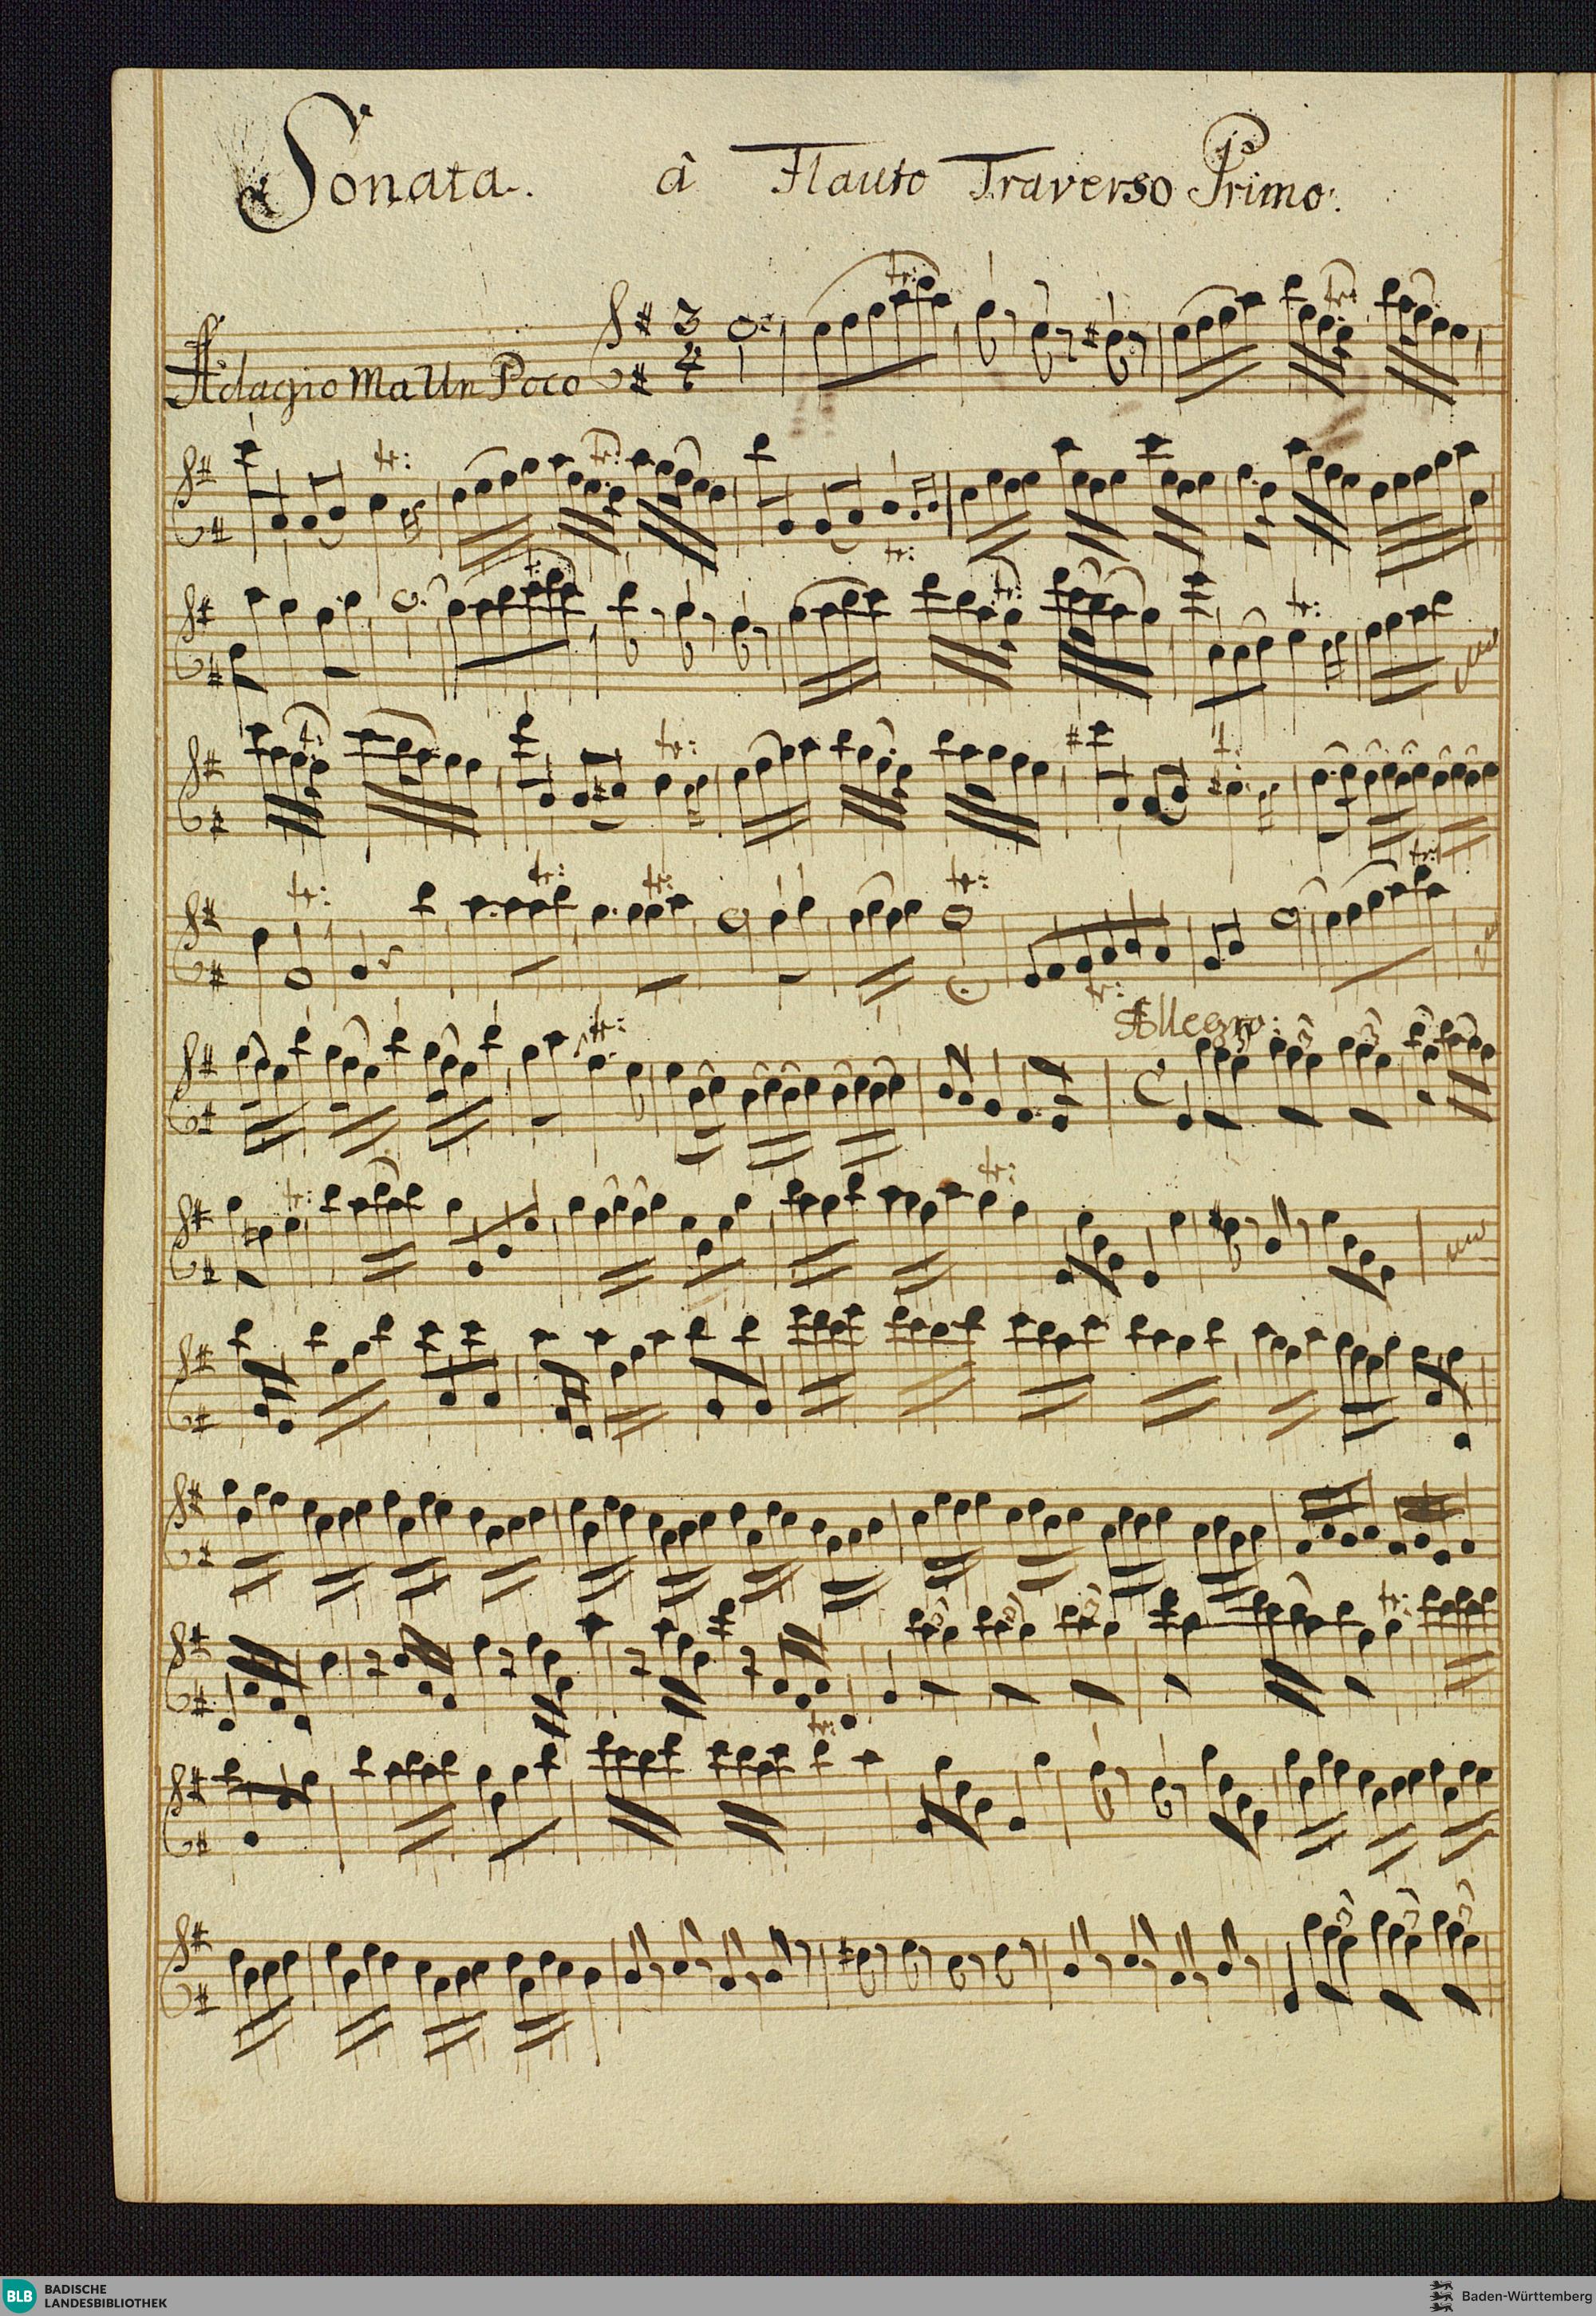 Sonata. â Flauto Traverso Primo:
Adagio Ma Un Poco
3
4
tr:
Allegro:
BLB BADISCHE
LANDESBIBLIOTHEK
Baden-Württemberg